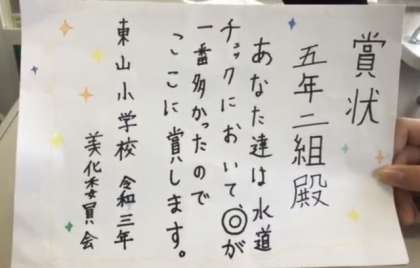 賞状
五年二組殿
あなた達は水道
チェックにおいて、◎が
一番多かったので
ここに賞します。
東山小学校 令和三年
美化委員会